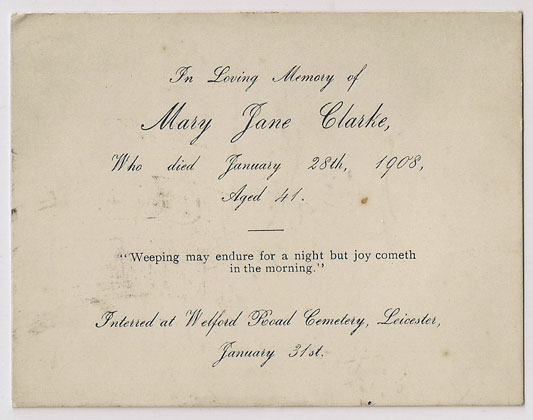 In Loving Memory of
Mary Jane Clarke,
Who died January 28th, 1908,
Aged 41.
"Weeping may endure for a night but joy cometh
in the morning."
Interred at Welford Road Cemetery, Leicester,
January 31st.